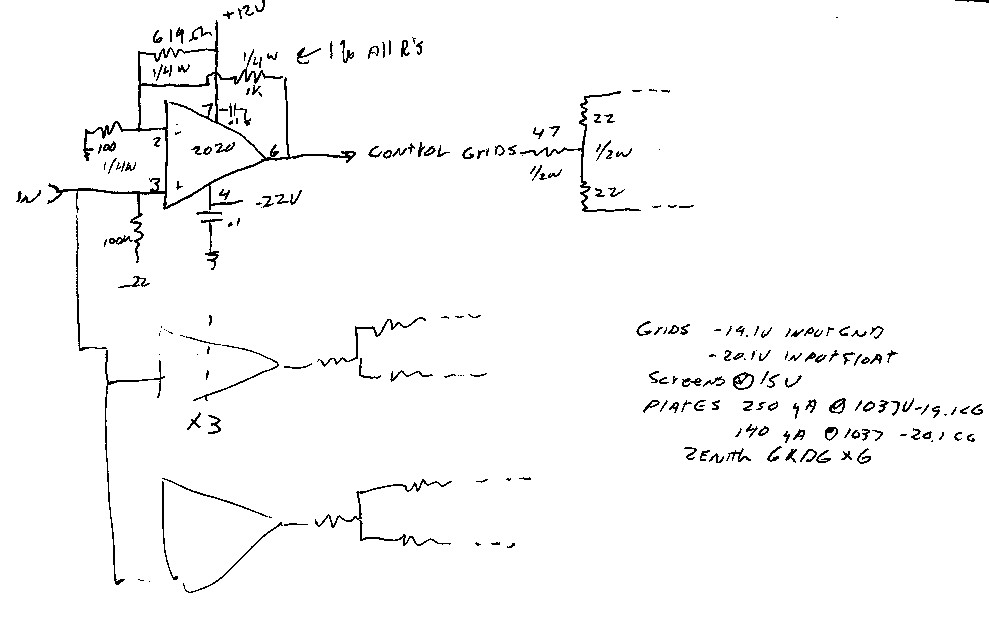 +12V
619 Ω
1/4W
1/4W
1K
← 1% All R's
7
.1
2
-
2020
6
100
1/4W
3
+
IN
4
-22V
.1
100K
-22
CONTROL GRIDS
47
1/2W
22
1/2W
22
X3
GRIDS -19.1V INPUT GND
-20.1V INPUT FLOAT
SCREENS @ 15V
PLATES 250 μA @ 1037V -19.1CG
140 μA @ 1037 -20.1 CG
ZENITH 6KD6 X6